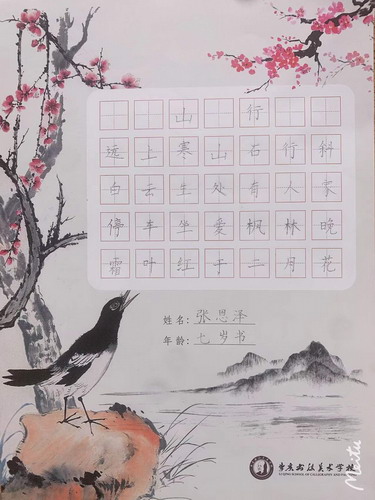 山 行
远上寒山石径斜
白云生处有人家
停车坐爱枫林晚
霜叶红于二月花
姓名：张恩泽
年龄：七岁书
书法美术学校
Meitu